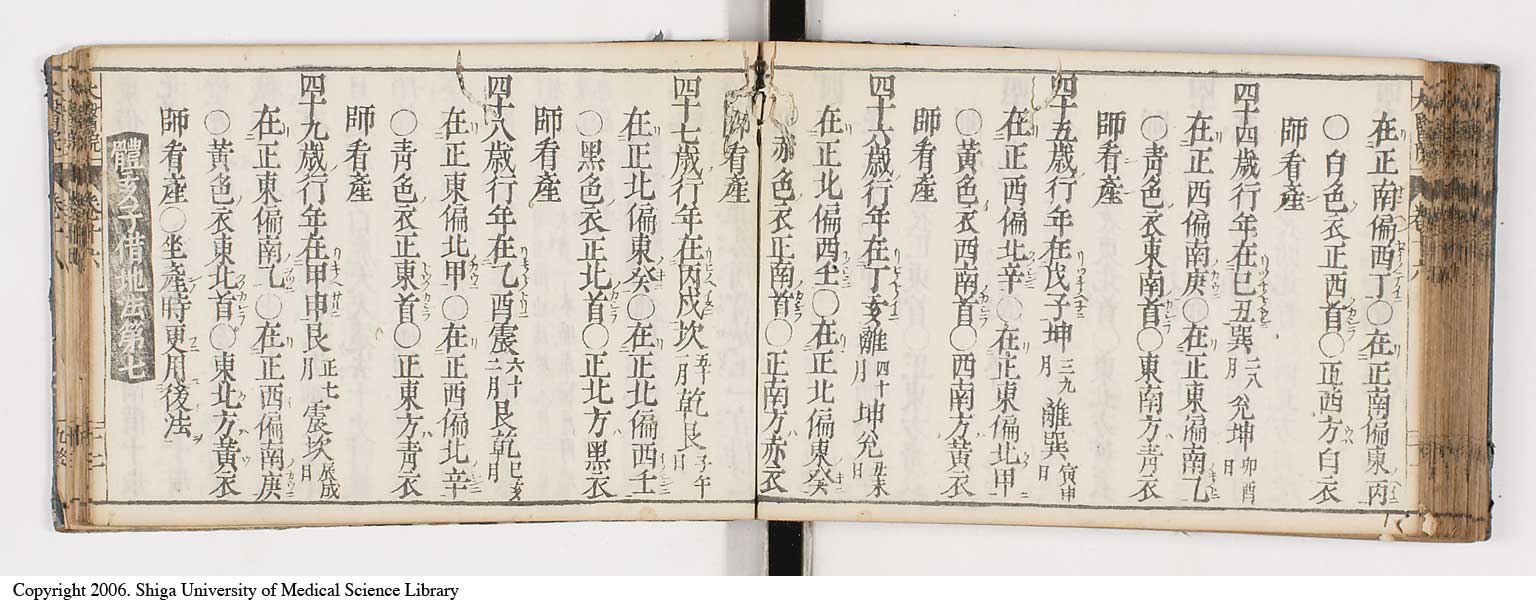 在正南偏西丁〇在正南偏東丙
〇白色衣正西首〇正西方白衣
師看產
四十四歲行年在巳丑巽二八月兌坤卯酉日
在正西偏南庚〇在正東偏南乙
〇青色衣東南首〇東南方青衣
師看產
四十五歲行年在戊子坤三九月離巽寅申日
在正西偏北辛〇在正東偏北甲
〇黃色衣西南首〇西南方黃衣
師看產
四十六歲行年在丁亥離四十月坤兌丑未日
在正北偏西壬〇在正北偏東癸
〇赤色衣正南首〇正南方赤衣
師看產
四十七歲行年在丙戌坎五十一月乾艮子午日
在正北偏東癸〇在正北偏西壬
〇黑色衣正北首〇正北方黑衣
師看產
四十八歲行年在乙酉震六十二月艮乾巳亥日
在正東偏北甲〇在正西偏北辛
〇青色衣正東首〇正東方青衣
師看產
四十九歲行年在甲申艮正七月震坎辰戌日
在正東偏南乙〇在正西偏南庚
〇黃色衣東北首〇東北方黃衣
師看產〇坐產時更用後法
體玄子借地法第七
Copyright 2006. Shiga University of Medical Science Library